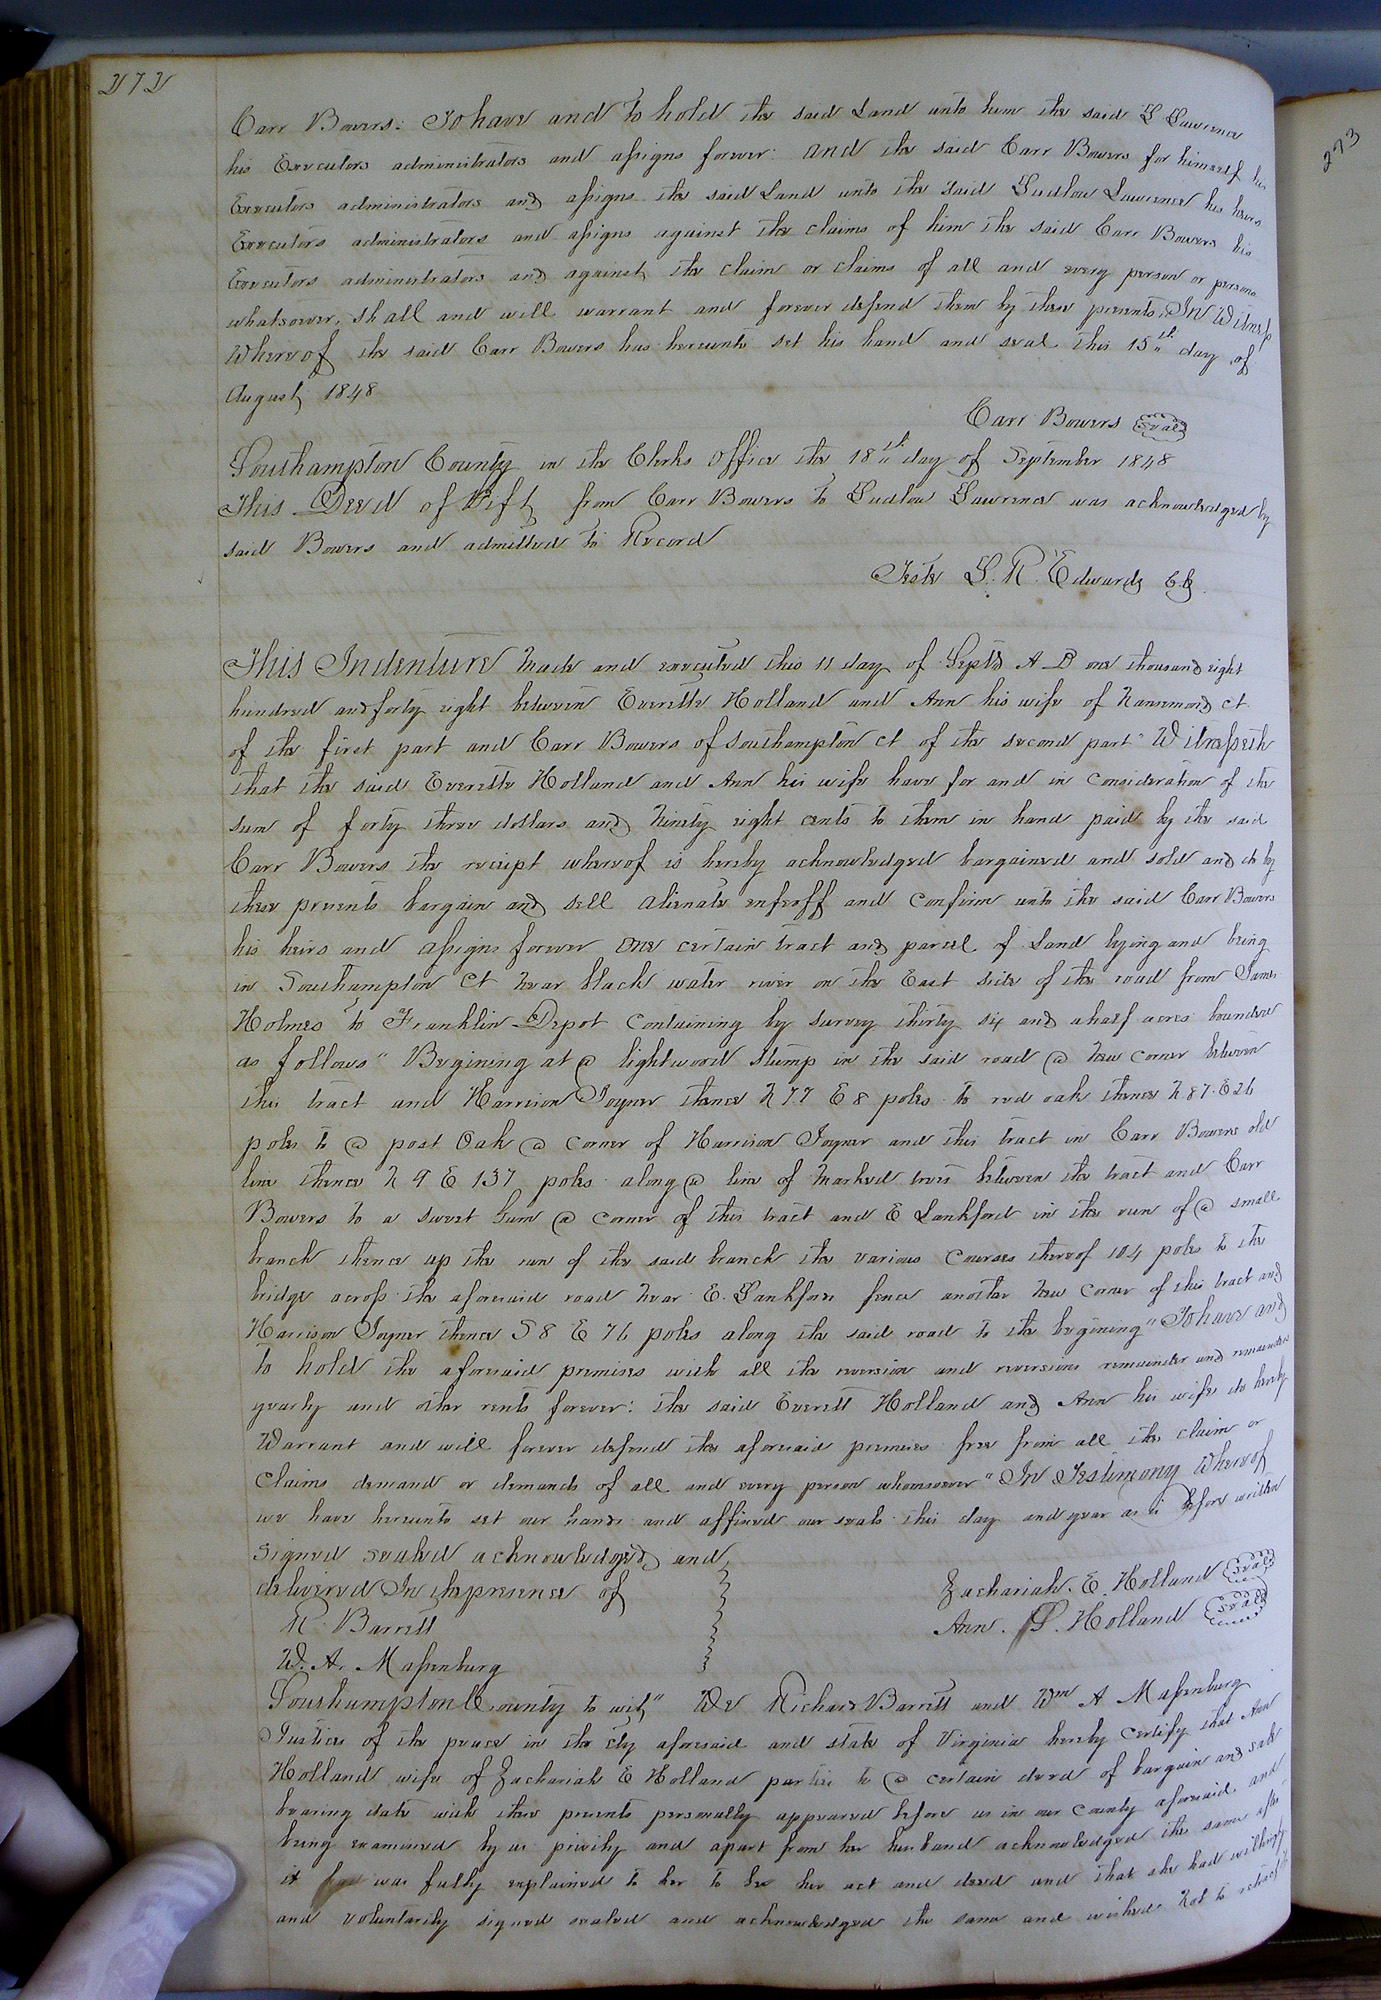 272
273
Carr Bowers: To have and to hold the said Land unto him the said L Lawrence
his Executors administrators and assigns forever: and the said Carr Bowers for himself his
Executors administrators and assigns the said Land unto the said Ludlow Lawrence his heirs
Executors administrators and assigns against the claims of him the said Carr Bowers his
Executors administrators and against the claim or claims of all and every person or persons
whatsoever, shall and will warrant and forever defend them by these presents, In Witness
Whereof the said Carr Bowers has hereunto set his hand and seal this 15th day of
August 1848
Carr Bowers Seal
Southampton County in the Clerks Office the 18th day of September 1848
This Deed of Gift from Carr Bowers to Ludlow Lawrence was acknowledged by
said Bowers and admitted to Record
Teste L. R. Edwards C.C.
This Indenture made and executed this 11 day of Sept A D one thousand eight
hundred and forty eight between Everette Holland and Ann his wife of Nansemond Ct
of the first part and Carr Bowers of Southampton Ct of the second part" Witnesseth
that the said Everette Holland and Ann his wife have for and in consideration of the
sum of forty three dollars and Ninety eight cents to them in hand paid by the said
Carr Bowers the receipt whereof is hereby acknowledged bargained and sold and do by
these presents bargain and sell alienate enfeoff and confirm unto the said Carr Bowers
his heirs and assigns forever one certain tract and parcel of Land lying and being
in Southampton Ct near black water river on the East side of the road from James
Holmes to Franklin Depot containing by survey thirty six and a half acres bounded
as follows" Begining at a lightwood stump in the said road a new corner between
this tract and Harrison Joyner thence N 77 E 8 poles to red oak thence N 87 E 26
poles to a post Oak a corner of Harrison Joyner and this tract in Carr Bowers old
line thence N 9 E 137 poles along a line of marked trees between the tract and Carr
Bowers to a sweet Gum a corner of this tract and E Lankford in the run of a small
branch thence up the run of the said branch the various courses thereof 104 poles to the
bridge across the aforesaid road near E. Lankford fence another new corner of this tract and
Harrison Joyner thence S 8 E 76 poles along the said road to the begining" To have and
to hold the aforesaid premises with all the reversion and reversions remainder and remainders
yearly and other rents forever: the said Everett Holland and Ann his wife do hereby
Warrant and will forever defend the aforesaid premises free from all the claim or
claims demand or demands of all and every person whomsoever" In Testimony whereof
we have hereunto set our hands and affixed our seals this day and year as is before written
Signed sealed acknowledged and
delivered In the presence of
R. Barrett
W. A. Massenburg
Zachariah. E. Holland Seal
Ann. P. Holland Seal
Southampton County to wit" We Richard Barrett and Wm A Massenburg
Justices of the peace in the cty aforesaid and state of Virginia hereby certify that Ann
Holland wife of Zachariah E Holland parties to a certain deed of bargain and sale
bearing date with these presents personally appeared before us in our County aforesaid and
being examined by us privily and apart from her husband acknowledged the same after
it was fully explained to her to be her act and deed and that she had willingly
and voluntarily signed sealed and acknowledged the same and wished not to retract it